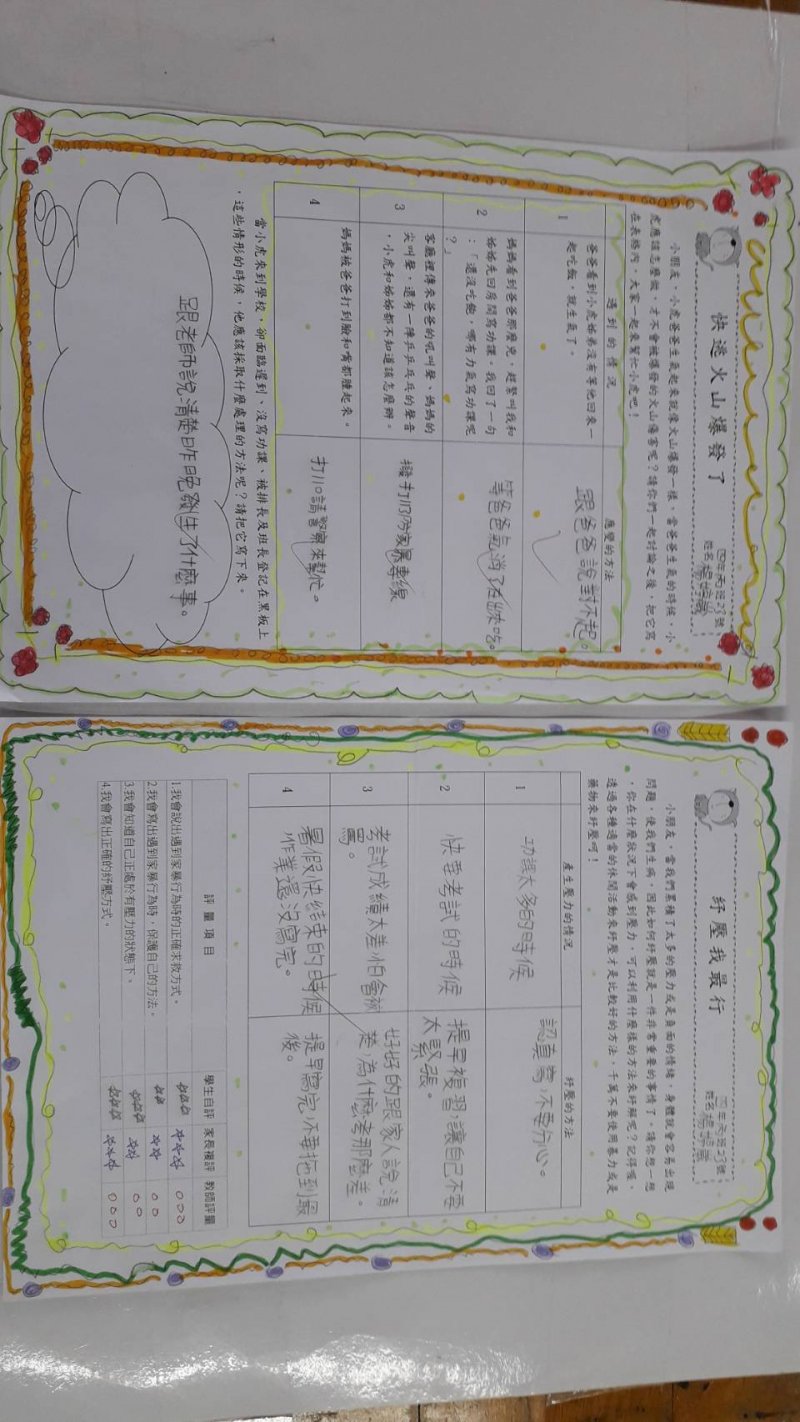 快逃火山爆發了
小朋友，小虎爸爸生氣起來就像火山爆發一樣，當爸爸生氣的時候，小
虎應該怎麼做，才不會被爆發的火山傷害呢？請你們一起討論之後，把它寫
在表格內，大家一起來幫忙小虎吧！
遇到的情況
應變的方法
1
爸爸看到小虎姊弟沒有等他回來一
起吃飯，就生氣了。
跟爸爸說對不起。
2
媽媽看到爸爸那麼兇，趕緊叫我和
姊姊先回房間寫功課。我回了一句
：「還沒吃飯，哪有力氣寫功課呢
？」
等爸爸氣消了在出來吃。
3
客廳裡傳來爸爸的吼叫聲、媽媽的
尖叫聲，還有一陣乒乒乓乓的聲音
，小虎和姊姊都不知道該怎麼辦。
撥打113的家暴專線
4
媽媽被爸爸打到臉和嘴都腫起來。
打110請警察來幫忙。
當小虎來到學校，卻面臨遲到、沒寫功課、被排長及班長登記在黑板上
，這些情形的時候，他應該採取什麼處理的方法呢？請把它寫下來。
跟老師說清楚昨晚發生了什麼事。
紓壓我最行
小朋友，當我們累積了太多的壓力或是負面的情緒，身體就會容易出現
問題，使我們生病，因此如何紓壓就是一件非常重要的事情了。請你想一想
，你在什麼狀況下會感到壓力，可以利用什麼樣的方法來紓解呢？記得喔，
透過各種適當的休閒活動來紓壓才是比較好的方法，千萬不要使用暴力或是
藥物來紓壓唷！
產生壓力的情況
紓壓的方法
1
功課太多的時候
認真寫，不要分心。
2
快要考試的時候
提早複習，讓自己不要
太緊張。
3
考試成績太差，怕會被
罵。
好好的跟家人說清
楚，為什麼考那麼差。
4
暑假快結束的時候
作業還沒寫完。
提早寫完，不要拖到最
後。
評量項目
學生自評
家長複評
教師評量
1.我會說出遇到家暴行為時的正確求救方式。
2.我會寫出遇到家暴行為時，保護自己的方法。
3.我會知道自己正處於有壓力的狀態下。
4.我會寫出正確的紓壓方式。